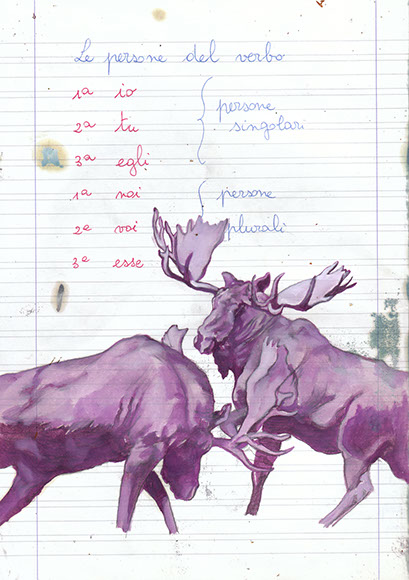 Le persone del verbo
1ª io
2ª tu
3ª egli
persone
singolari
1ª noi
2ª voi
3ª esse
persone
plurali